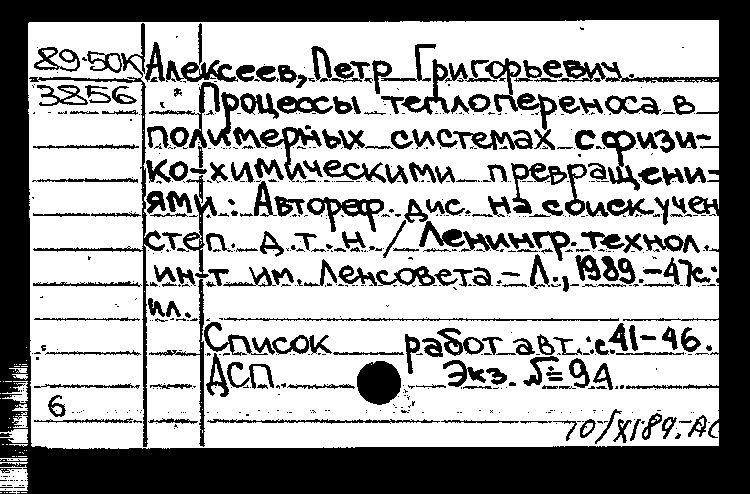 89-50К Алексеев, Петр Григорьевич.
3856 Процессы теплопереноса в
полимерных системах с физи-
ко-химическими превращени-
ями: Автореф. дис. на соиск. учен
степ. д.т.н. / Ленингр. технол.
ин-т им. Ленсовета. - Л., 1989. - 47с.:
ил.
Список работ авт.: с. 41-46.
ДСП Экз. № 94
6
10/XI89. АС